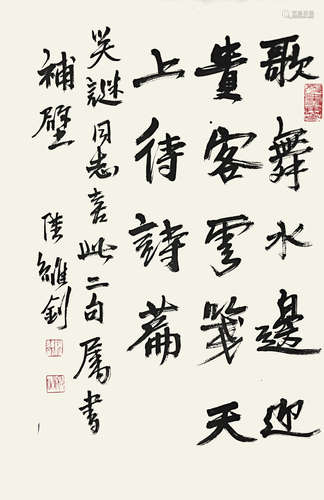 歌舞水邊迎
貴客雲箋天
上待詩篇
笑謎同志喜此二句屬書
補壁
陸維釗